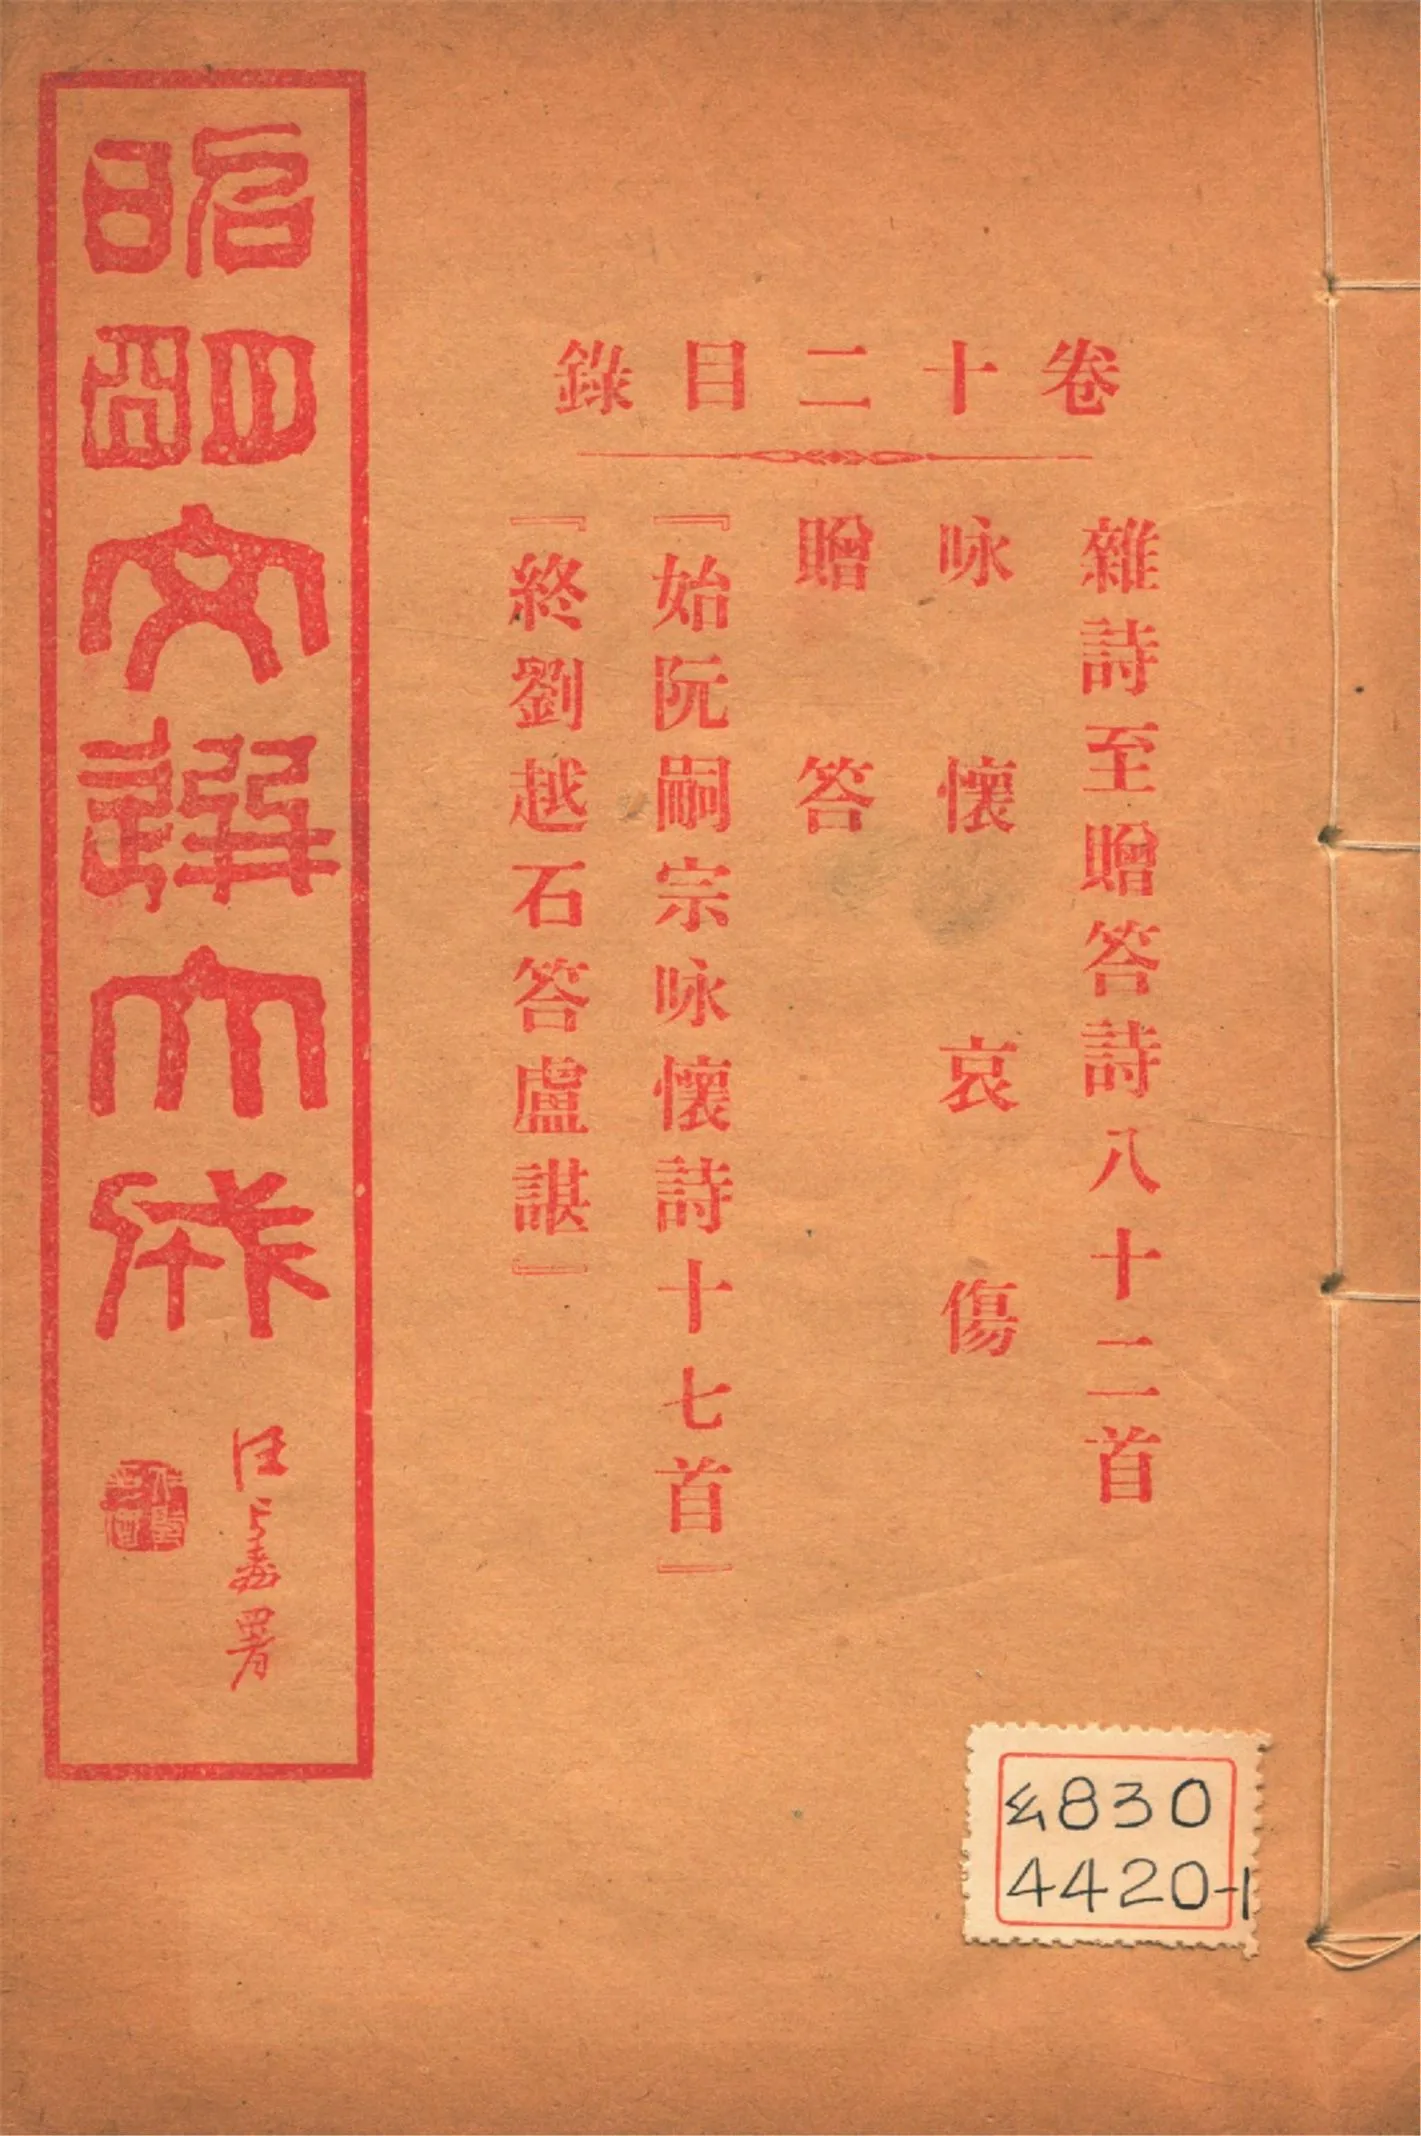 卷十二目錄
雜詩至贈答詩八十二首
咏懷哀傷
贈答
『始阮嗣宗咏懷詩十七首』
『終劉越石答盧諶』
昭明文選大成
汪署
830
4420-1